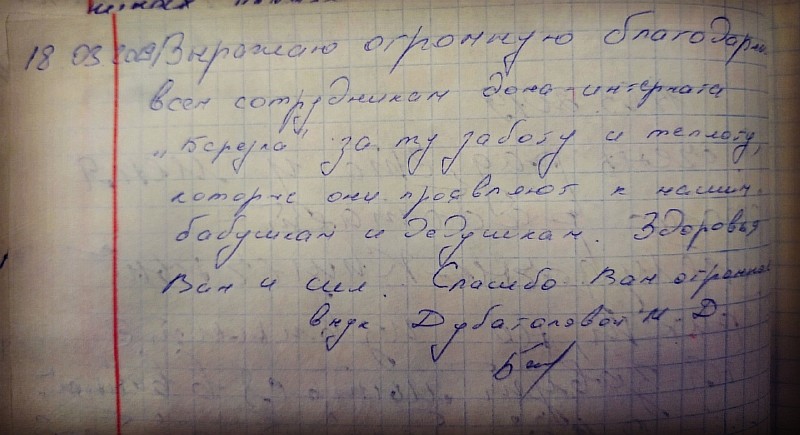 18 03 2019 Выражаю огромную благодарн.
всем сотрудникам дома-интерната
„Березка" за ту заботу и теплоту,
которые они проявляют к нашим
бабушкам и дедушкам. Здоровья
Вам и сил. Спасибо Вам огромное
внук М. Д.